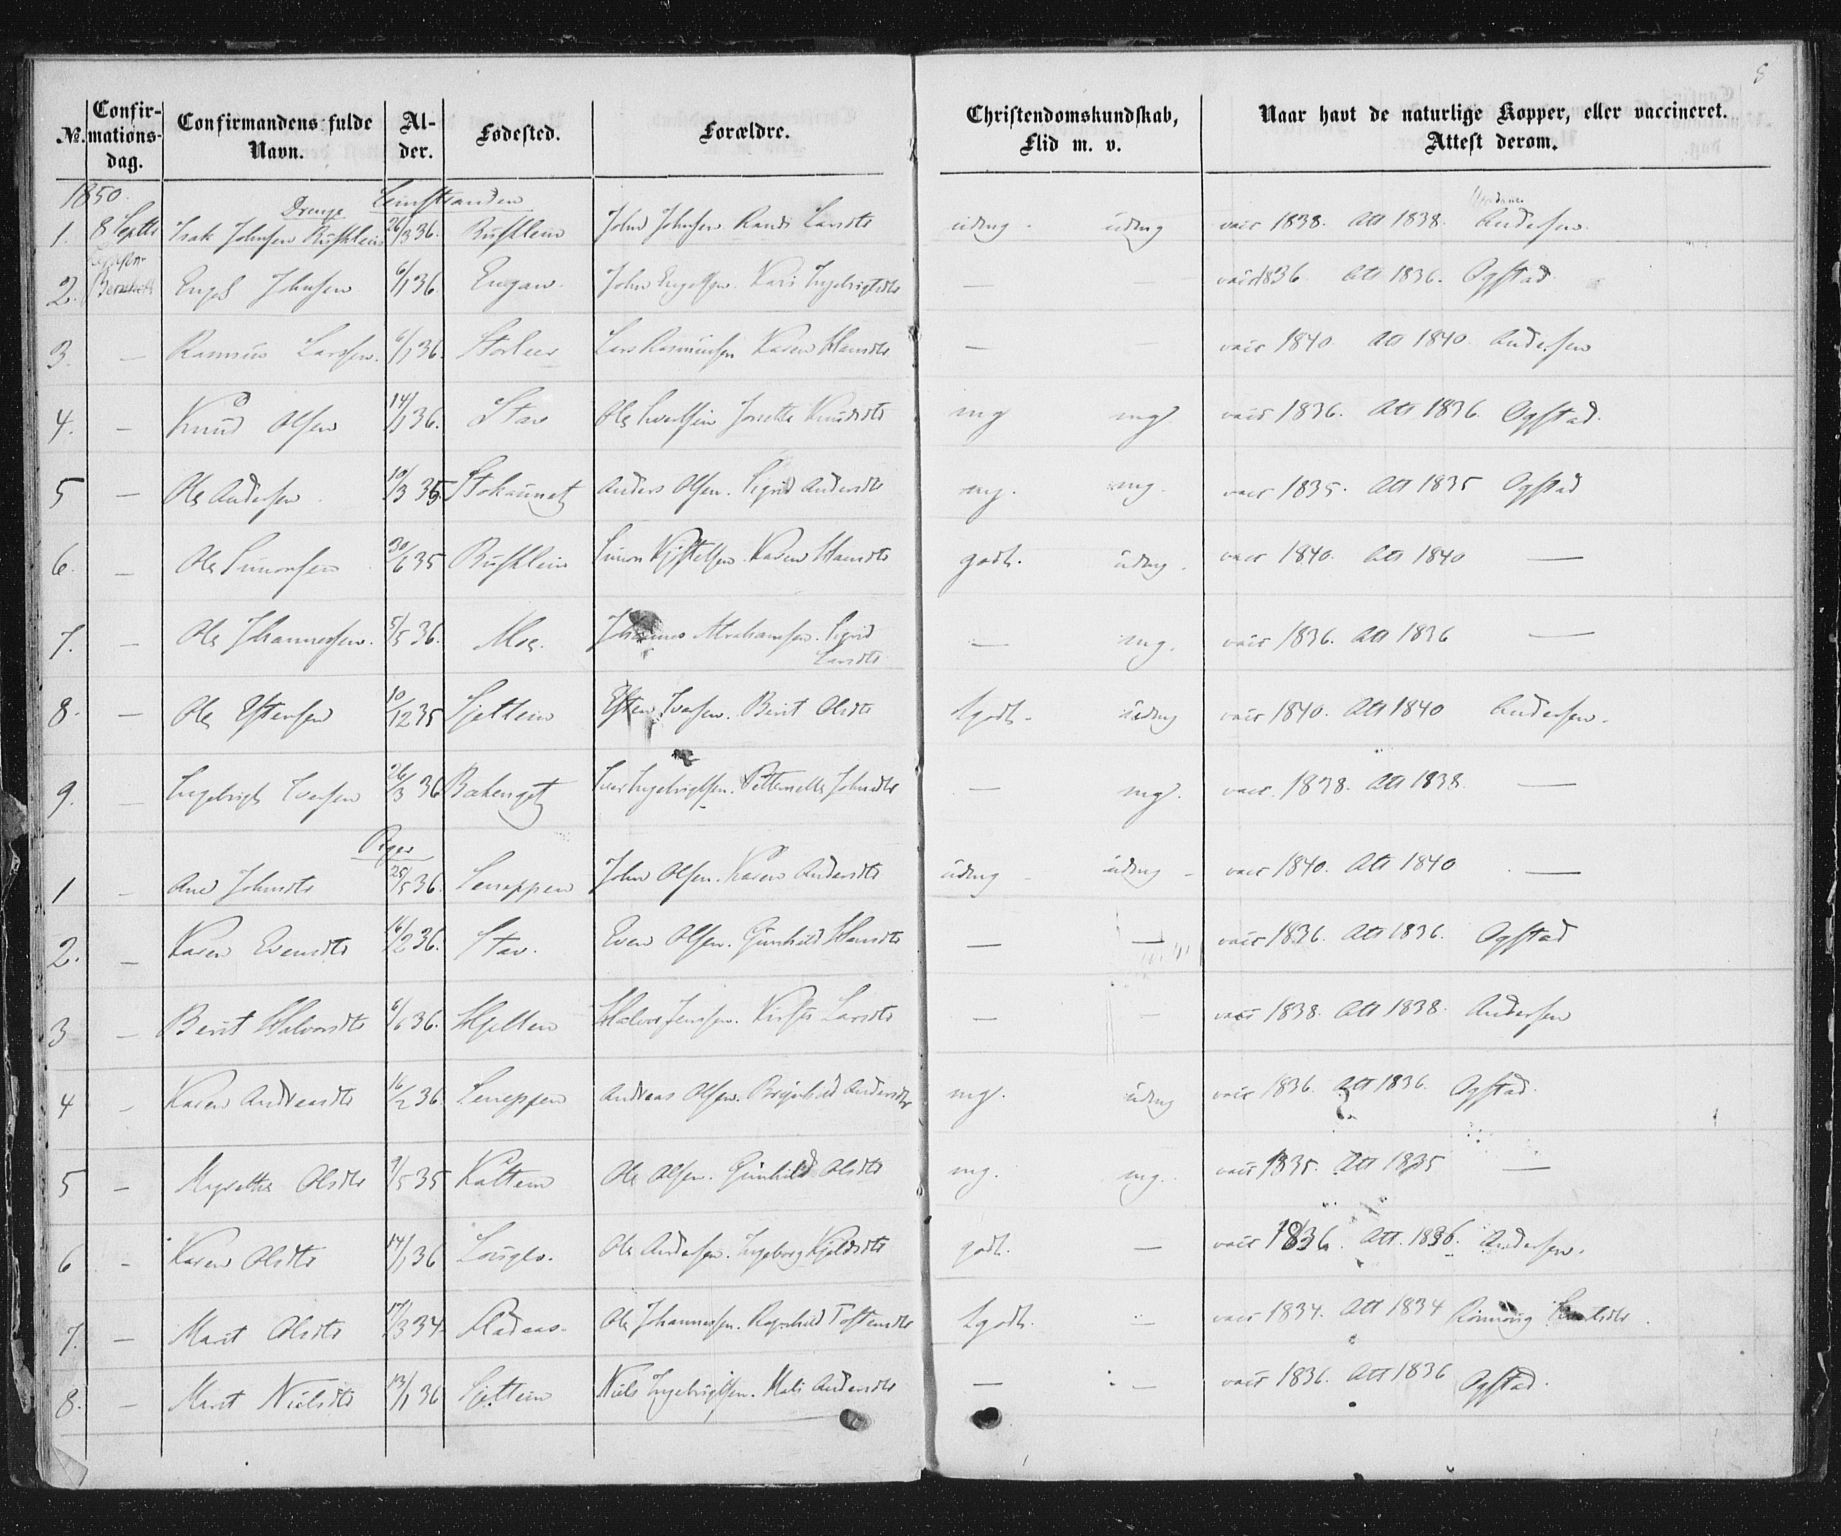 8
No. Confirmationsdag. Confirmandens fulde Navn. Alder. Fødested. Forældre. Christendomskundskab, Flid m. v. Naar havt de naturlige Kopper, eller vaccineret. Attest derom.
1850. Drenge
1. 8 Septbr Isak Johnsen 36. John Johnsen Randi Larsdtr udmg. udmg vacc 1838. Att 1838. Andersen
2. Engel Johnsen 6/1 36. Engan John Engelsen. Kari Ingebrigtsdtr — — vacc 1836. Att 1836. Ogstad
3. — Rasmus Larssen. 6/1 36. Lars Rasmussen Karen Hansdtr — — vacc 1840. Att 1840. Andersen
4. — Knud Olsen 14/1 36. Stav Ole Knudsdtr mg mg vacc 1836. Att 1836 Ogstad.
5 — Ole Andersen 10/3 35 Stokaunet Anders Olsen. Sigrid Andersdtr mg. mg. vacc 1835. Att 1835 Ogstad
6. — Ole Simonsen 30/6 35 Simon Karen Hansdtr godt. udmg. vacc 1840. Att 1840 —
7. — Ole Johannessen. 5/5 36. Moe. Johannes Abrahamsen. Sigrid Larsdtr — mg. vacc 1836. Att 1836 —
8. — Ole Estensen 10/12 35 Esten Iversen. Berit Olsdtr udmg vacc 1840. Att 1840 Andersen.
9. — Ingebrigt Iversen 26/3 36 Iver Ingebrigtsen. Johnsdtr — mg. vacc. 1838. Att 1838. —
Piger
1 — Ane Johnsdtr 25/5 36. Leneppen John Olsen. Karen Andersdtr udmg udmg vacc 1840. Att 1840 —
2. — Karen Evensdtr 16/2 36. Stav. Even Olsen. Gunhild Hansdtr — — vacc 1836. Att 1836. Ogstad
3 — Berit Halvorsdtr 6/6 36. Halvor Jenssen. Larsdtr — — vacc 1838. Att 1838. Andersen
4 — Karen Andreasdtr 16/2 36. Leneppen Andreas Olsen. Andersdtr mg. udmg vacc 1836. Att 1836. Ogstad.
5 — Olsdtr 9/5 35 Kaltem Ole Olsen. Gunhild Olsdtr mg. mg. vacc 1835. Att 1835 —
6 — Karen Olsdtr 14/1 36 Ole Andersen. Ingeborg godt. — vacc 1836. Att. 1836. Andersen.
7. — Marit Olsdtr 17/3 34 Ole Johannessen. Ragnhild — vacc 1834. Att 1834
8. — Marit Nielsdtr 13/1 36 Niels Ingebrigtsen. Mali Andersdtr — — vacc 1836. Att 1836 Ogstad.